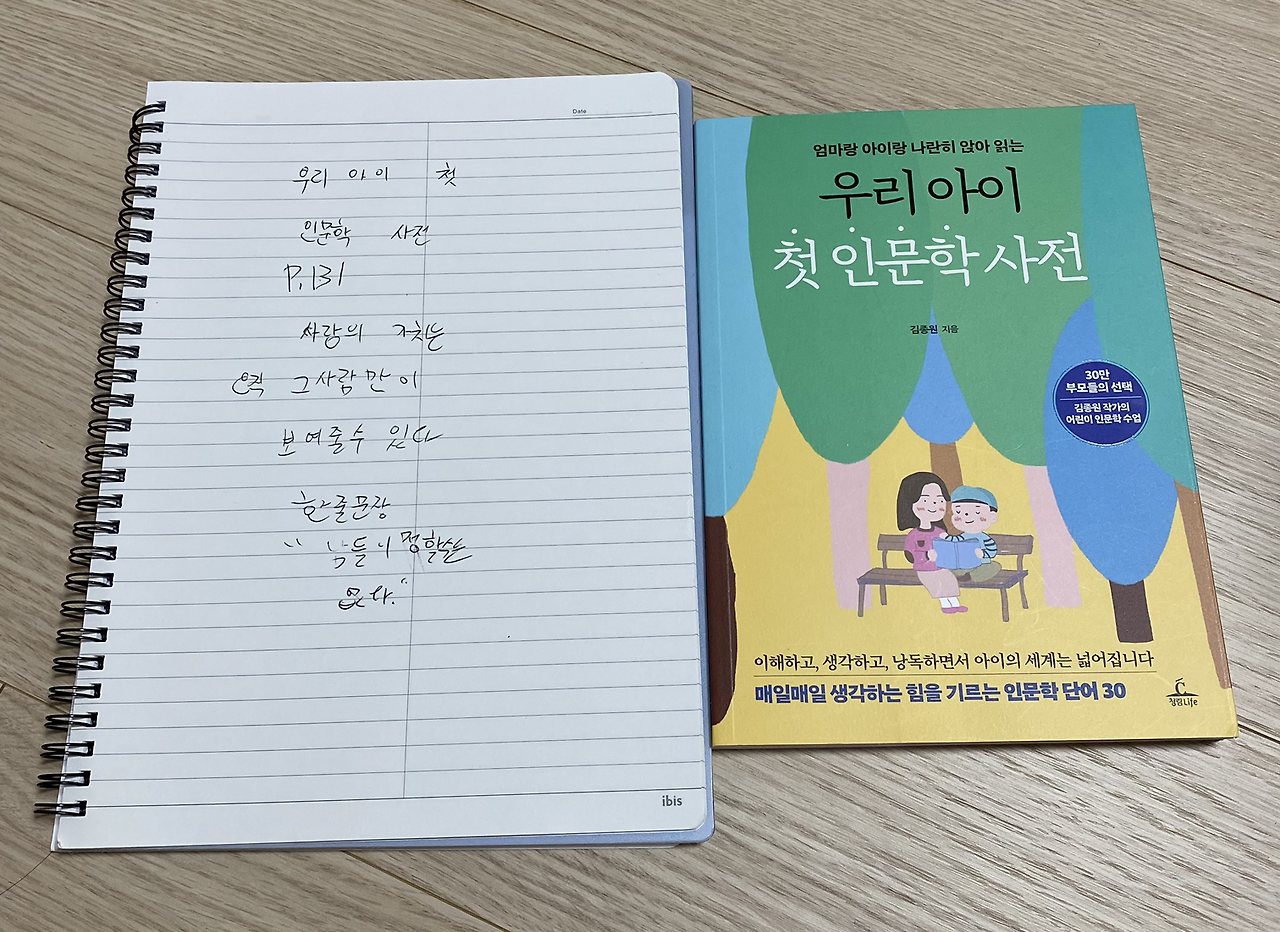 Date
우리 아이 첫
인문학 사전
P.131
사랑의 가치는
오직 그사람만이
보여줄수 있다
한줄문장
"남들이 정할수는
없다."
ibis
엄마랑 아이랑 나란히 앉아 읽는
우리 아이
첫 인문학 사전
김종원 지음
30만
부모들의 선택
김종원 작가의
어린이 인문학 수업
이해하고, 생각하고, 낭독하면서 아이의 세계는 넓어집니다
매일매일 생각하는 힘을 기르는 인문학 단어 30
청림Life